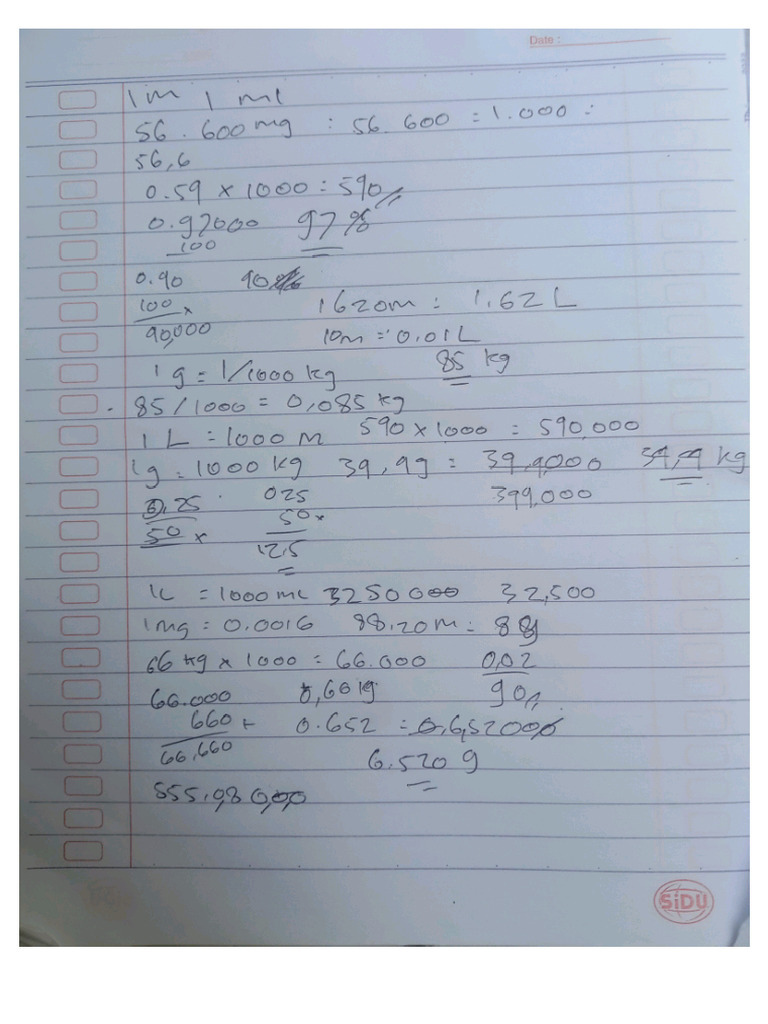 Date :
1m 1 ml
56.600mg : 56.600 = 1.000 :
56,6
0.59 x 1000 = 590
0.97000 97%
100
0.90 90%
100 x 1620m = 1.62 L
90,000 10m = 0.01L
1 g = 1/1000 kg 85 kg
85/1000 = 0,085 kg
1 L = 1000 M 590 x 1000 = 590,000
1g = 1000 kg 39,9g = 39,9000 39,9 kg
0,25 025 399,000
50 x 50 x
12,5
1L = 1000 ml 3250000 32,500
1mg = 0.0016 88.20m = 88
66 kg x 1000 = 66.000 0,02
66.000 0,66 kg 90
660 + 0.652 = 0,652000
66,660 6.520 g
555.98000
SiDU